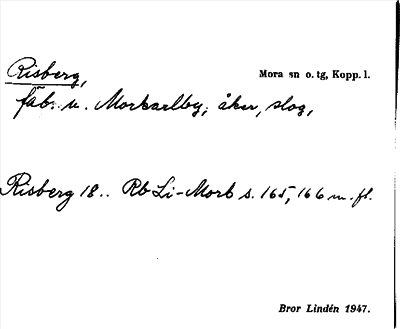 Risberg,
Mora sn o. tg, Kopp. l.
fäb. u. Morkarlby; åker, slog,
Risberg 18.. Rb Li-Morb s. 165, 166 m. fl.
Bror Lindén 1947.